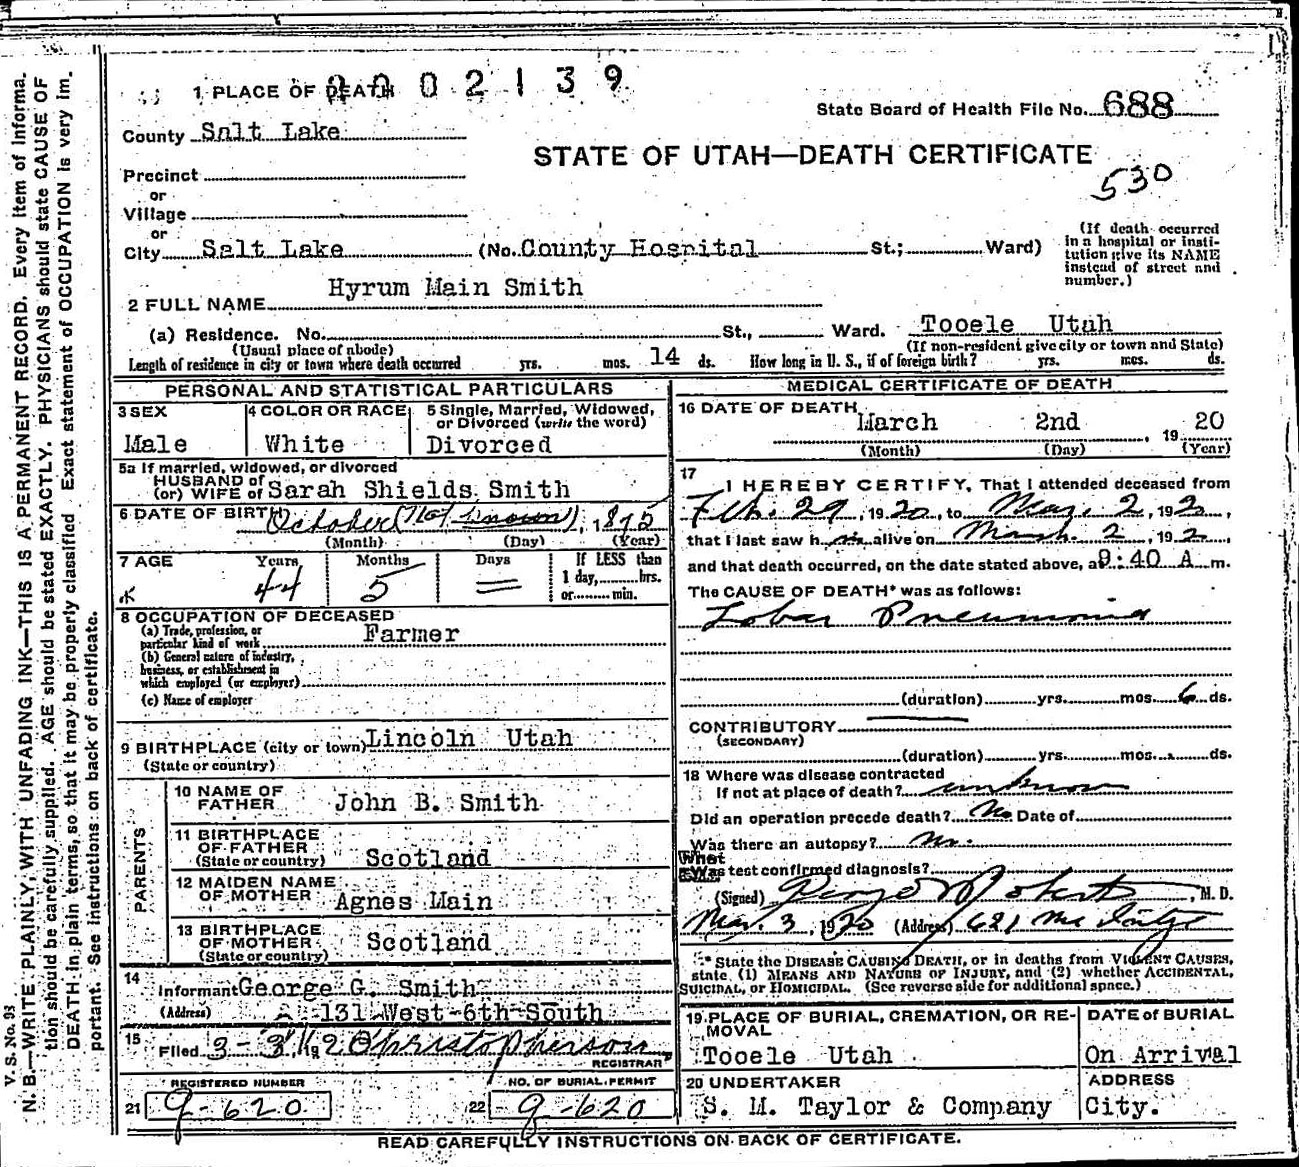 2002139
1 PLACE OF DEATH
State Board of Health File No. 688
County Salt Lake
STATE OF UTAH—DEATH CERTIFICATE
530
Precinct
or
Village
or
City Salt Lake (No. County Hospital St.; Ward)
(If death occurred
in a hospital or insti-
tution give its NAME
instead of street and
number.)
2 FULL NAME Hyrum Main Smith
(a) Residence. No. St., Ward. Tooele Utah
(Usual place of abode) (If non-resident give city or town and State)
Length of residence in city or town where death occurred yrs. mos. 14 ds. How long in U. S., if of foreign birth? yrs. mos. ds.
PERSONAL AND STATISTICAL PARTICULARS
3 SEX
Male
4 COLOR OR RACE
White
5 Single, Married, Widowed,
or Divorced (write the word)
Divorced
5a If married, widowed, or divorced
HUSBAND of
(or) WIFE of Sarah Shields Smith
6 DATE OF BIRTH October (Not Known), 1875
(Month) (Day) (Year)
7 AGE Years Months Days If LESS than
44 5 = 1 day, hrs.
or min.
8 OCCUPATION OF DECEASED
(a) Trade, profession, or
particular kind of work Farmer
(b) General nature of industry,
business, or establishment in
which employed (or employer)
(c) Name of employer
9 BIRTHPLACE (city or town) Lincoln Utah
(State or country)
PARENTS
10 NAME OF
FATHER John B. Smith
11 BIRTHPLACE
OF FATHER
(State or country) Scotland
12 MAIDEN NAME
OF MOTHER Agnes Main
13 BIRTHPLACE
OF MOTHER
(State or country) Scotland
14
Informant George G. Smith
(Address) 131 West 6th South
15
Filed 3-3, 19 2 Christopherson
REGISTRAR
REGISTERED NUMBER
21 g-620
NO. OF BURIAL PERMIT
22 g-620
MEDICAL CERTIFICATE OF DEATH
16 DATE OF DEATH
March 2nd, 1920
(Month) (Day) (Year)
17
I HEREBY CERTIFY, That I attended deceased from
Feb. 29, 1920, to Mar. 2, 1920,
that I last saw him alive on March 2, 192,
and that death occurred, on the date stated above, at 9:40 A m.
The CAUSE OF DEATH* was as follows:
Lobar Pneumonia
(duration) yrs. mos. 6 ds.
CONTRIBUTORY
(SECONDARY)
(duration) yrs. mos. ds.
18 Where was disease contracted
If not at place of death? unknown
Did an operation precede death? No Date of
Was there an autopsy? No.
What
test confirmed diagnosis?
(Signed) Roberts, M. D.
Mar. 3, 1920 (Address) 621 McIntyre
* State the DISEASE CAUSING DEATH, or in deaths from VIOLENT CAUSES,
state (1) MEANS AND NATURE OF INJURY, and (2) whether ACCIDENTAL,
SUICIDAL, or HOMICIDAL. (See reverse side for additional space.)
19 PLACE OF BURIAL, CREMATION, OR RE-
MOVAL
Tooele Utah
DATE of BURIAL
On Arrival
20 UNDERTAKER
S. M. Taylor & Company
ADDRESS
City.
READ CAREFULLY INSTRUCTIONS ON BACK OF CERTIFICATE.
V. S. No. 93
N. B.—WRITE PLAINLY, WITH UNFADING INK—THIS IS A PERMANENT RECORD. Every item of informa-
tion should be carefully supplied. AGE should be stated EXACTLY. PHYSICIANS should state CAUSE OF
DEATH in plain terms, so that it may be properly classified. Exact statement of OCCUPATION is very im-
portant. See instructions on back of certificate.